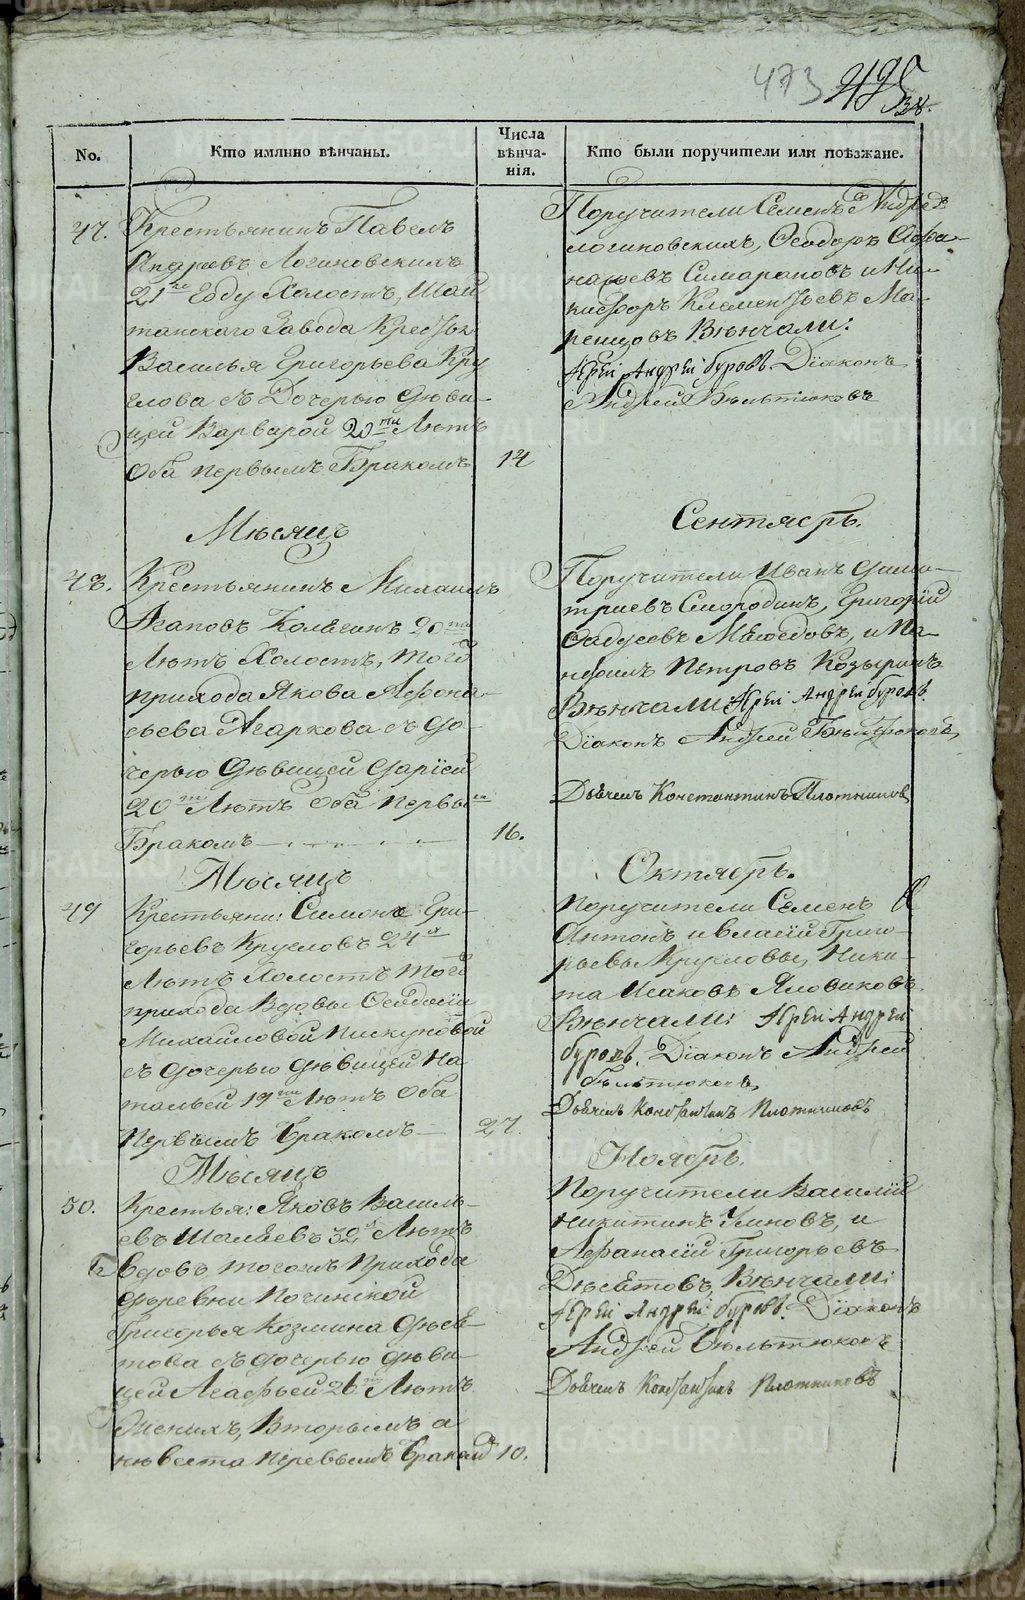 473 495
38.
No.
Кто имянно вѣнчаны.
Числа вѣнчанія.
Кто были поручители или поѣзжане.
47. Крестьянинъ Павелъ
Андреевъ Логиновскихъ
21го Году Холостъ, Шай-
танскаго Завода Крестья:
Василья Григорьева Кру
глова съ Дочерью Дѣви-
цей Варварой 20ти Лѣтъ
Оба первымъ Бракомъ 14
Поручители Семенъ Андрей
Логиновскихъ, Ѳеодоръ Афа-
насьевъ и Ни-
кифоръ Клементьевъ
Вѣнчали:
Іерей Андрей Буровъ. Діаконъ
Андрей Бѣльтюковъ
Мѣсяцъ
Сентябрь.
48. Крестьянинъ Михаилъ
Агаповъ 20ти
Лѣтъ Холостъ, того
прихода Якова Афона-
сьева Агаркова съ до-
черью Дѣвицей Даріей
20ти Лѣтъ Оба Первы:
Бракомъ 16.
Поручители Иванъ Дми-
тріевъ Смородинъ, Григорій
и Па-
нфилъ Петровъ Козыринъ
Вѣнчали Іерей Андрей Буровъ
Діаконъ Андрей Бѣльтюковъ,
Дьячекъ Константинъ Плотниковъ
Мѣсяцъ
Октябрь.
49 Крестьяни: Симонъ Гри-
горьевъ Кругловъ 24х
Лѣтъ Холостъ того
прихода Вдовы Ѳеодосіи
Михайловой Пискуновой
съ дочерью дѣвицей На
тальей 19ти Лѣтъ Оба
Первымъ Бракомъ 27.
Поручители Семенъ
Антонъ и Власій Григо-
рьевы Кругловы, Ники-
та Исаковъ Яловиковъ
Вѣнчали: Іерей Андрей
Буровъ, Діаконъ Андрей
Бѣльтюковъ,
Дьячекъ Константинъ Плотниковъ
Мѣсяцъ
Ноябрь.
50. Крестья: Яковъ Василь-
евъ 32х Лѣтъ
Вдовъ тогожъ Прихода
Деревни Починской
Григорья Козмина Дѣсе-
това съ дочерью дѣви-
цей Агафьей 26ти Лѣтъ
Женихъ, Вторымъ а
невеста первымъ Браком 10.
Поручители Василій
Никитинъ и
Афанасій Григорьевъ
Дѣсетовъ, Вѣнчали:
Іерей Андрей Буровъ. Діаконъ
Андрей Бѣльтюковъ
Дьячекъ Константинъ Плотниковъ
METRIKI.GASO-URAL.RU